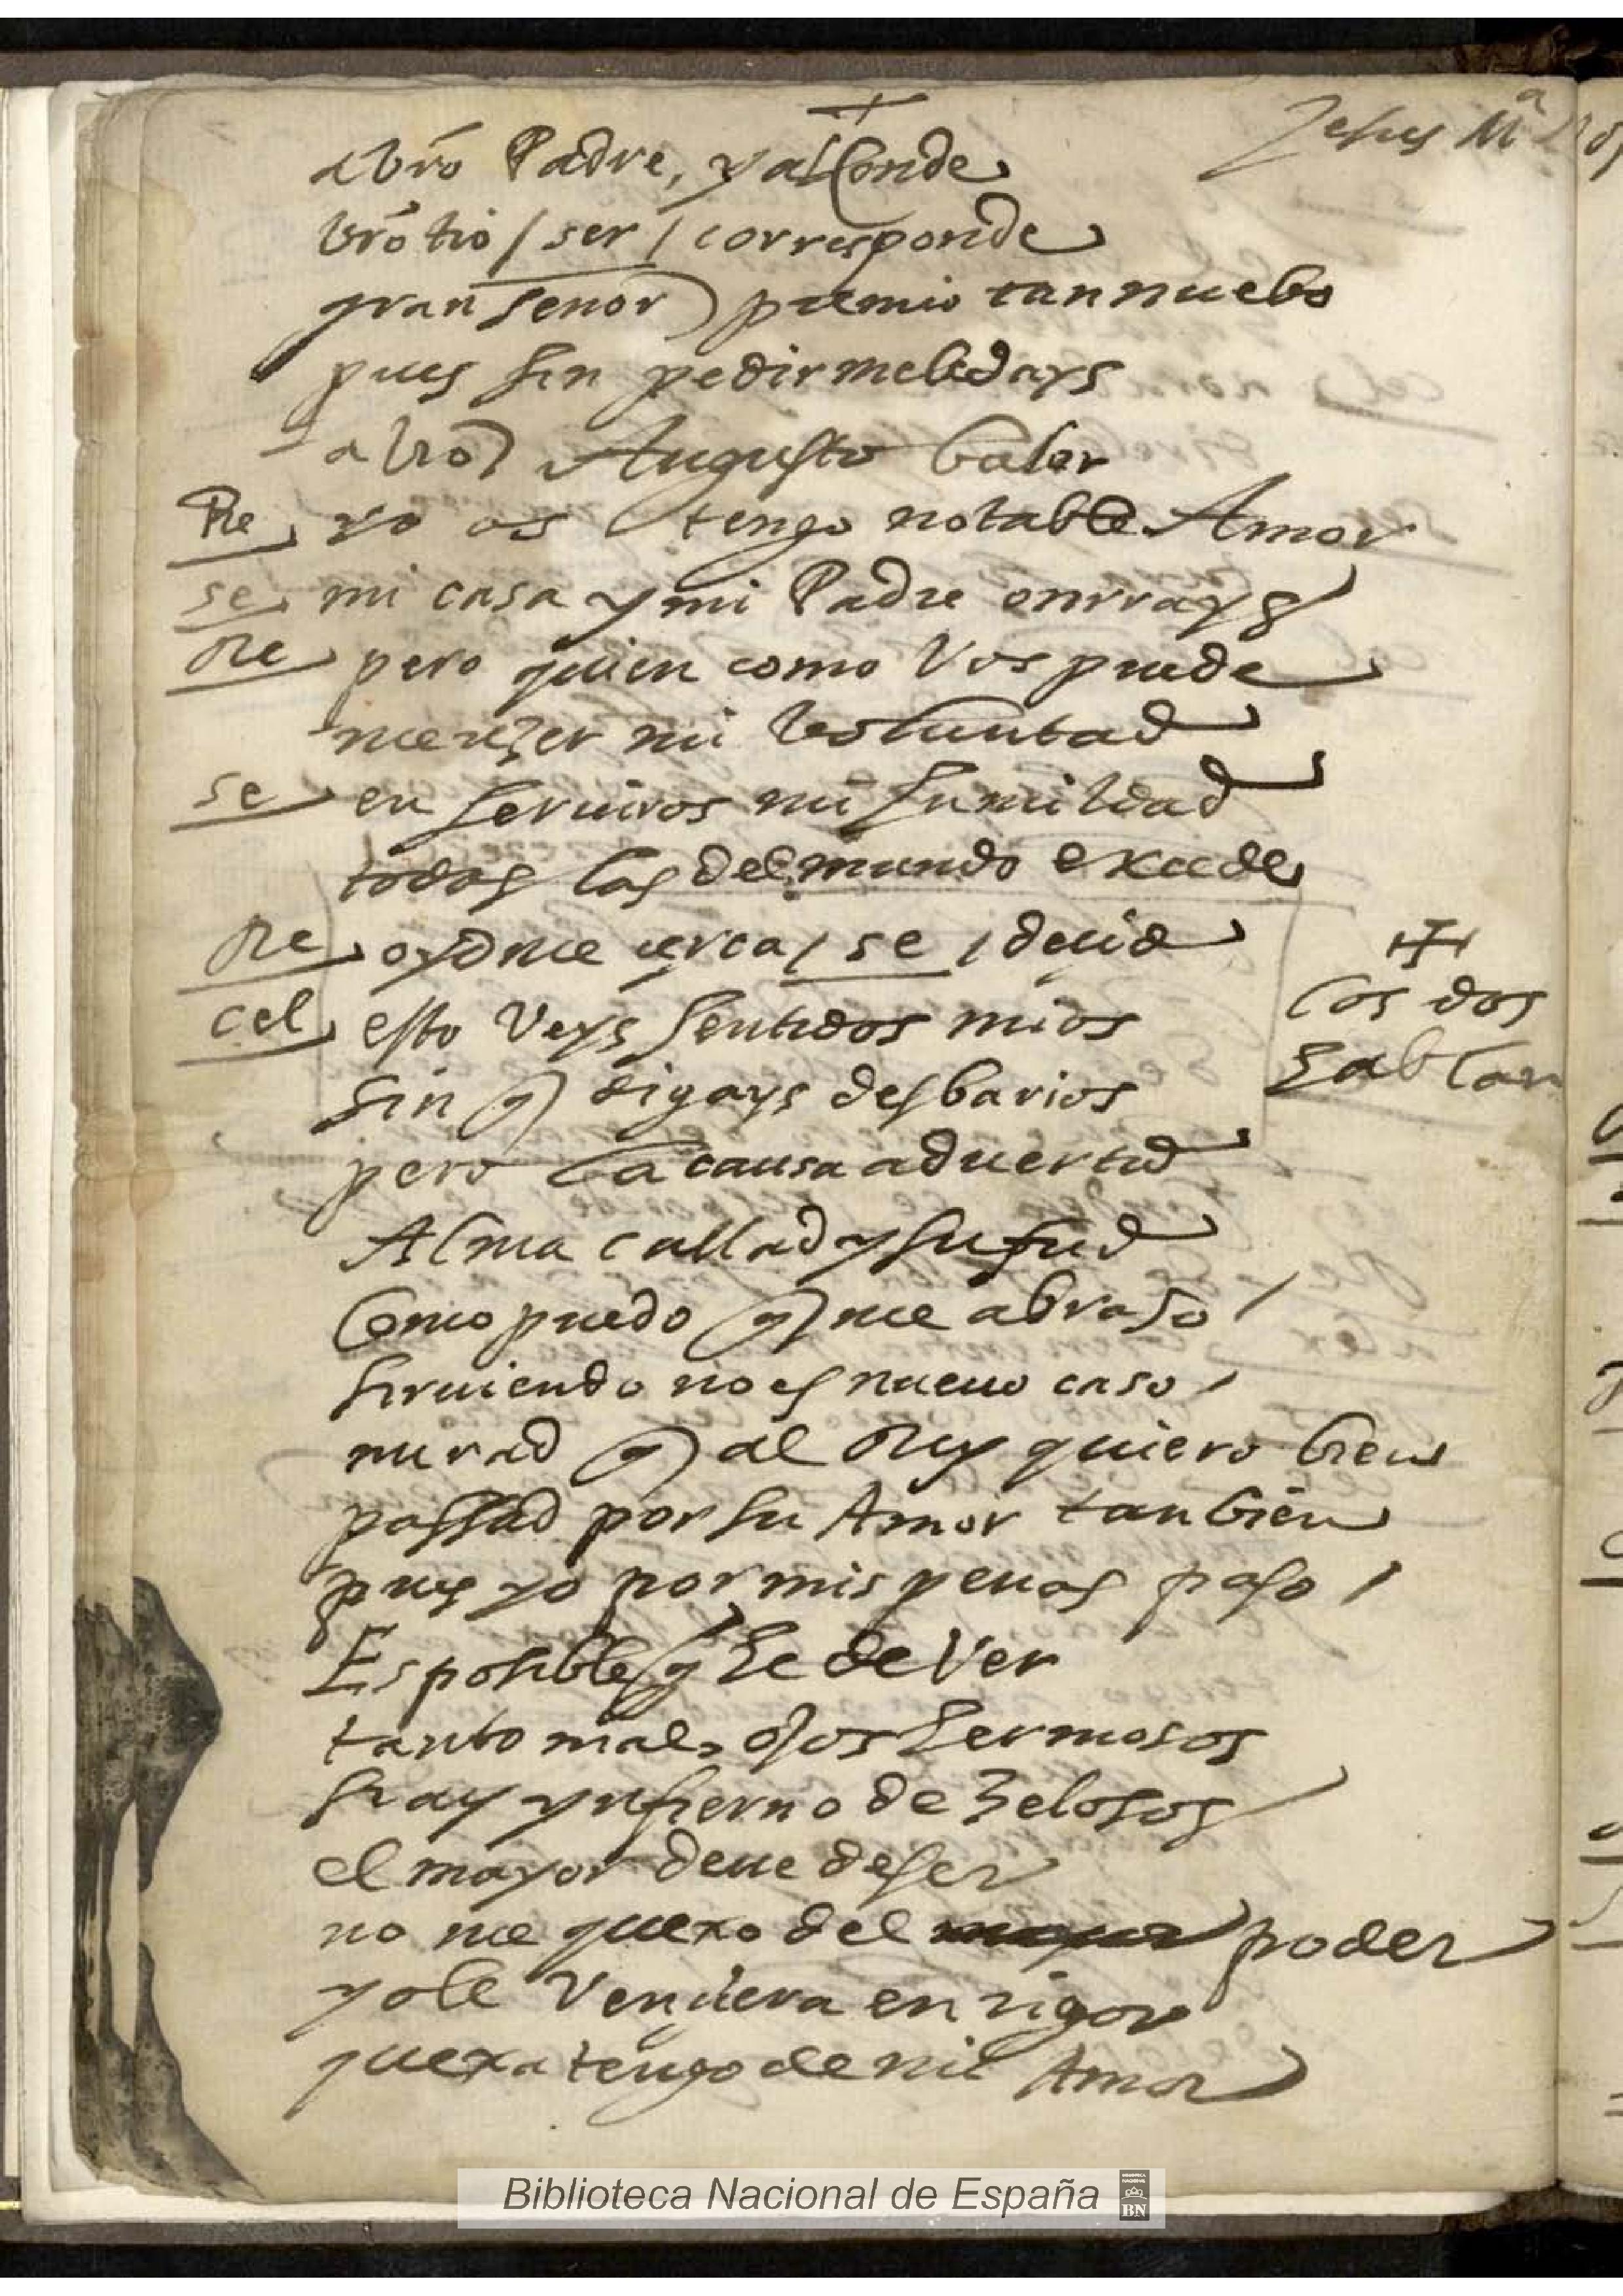 Jesus Mª
a vrõ Padre, y al Conde
vrõ tio / ser / corresponde
gran señor) premio tan nuebo
pues sin pedirmeledays
a vrõ Augusto balor
Re yo os tengo notable Amor
se mi casa y mi Padre onrrays
Re pero quien como Vos puede
mereçer mi voluntad
se en seruiros mi humildad
todas las del mundo exçede
Re oydme çerca / se / deçid
cel esto Veys sentidos mios
los dos
hablan
sin q digays desbarios
pero la causa aduertid
Alma callad y sufrid
Como puedo q me abraso /
siruiendo no es nueuo caso /
mirad q al Rey quiero bien
passad por su Amor tanbien
pues yo por mis penas paso /
Es posible q he de Ver
tanto mal, ojos hermosos
si ay ynfierno de zelosos
el mayor deue de ser
no me quexo del poder
yo le Vençiera en rigor
quexa tengo de mi Amor
Biblioteca Nacional de España
BN